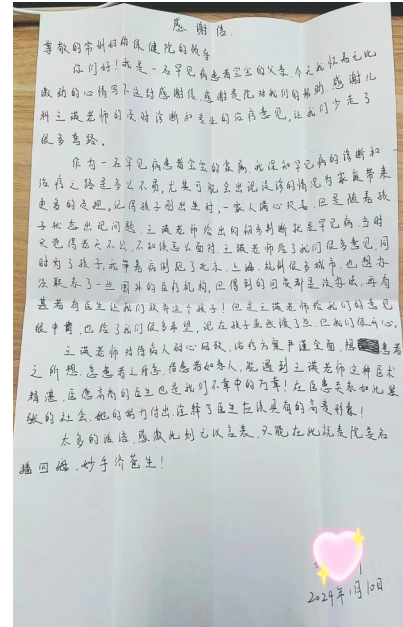 感谢信
尊敬的常州妇幼保健院的领导
你们好!我是一名罕见病患者宝宝的父亲,今天我怀着无比
激动的心情写下这封感谢信,感谢贵院对我们的帮助,感谢儿
科王波老师的及时诊断和专业的治疗意见,让我们少走了
很多弯路。
作为一名罕见病患者宝宝的家属,我深知罕见病的诊断和
治疗之路是多么不易,尤其可能会出现误诊的情况为家庭带来
更多的记得孩子刚出生时,一家人满心欢喜,但是随着孩
子状态出现问题,王波老师给出的初步判断就是罕见病,当时
只觉得老天不公,不知该怎么面对,王波老师给了我们很多意见,同
时为了孩子,我带着病例跑了北京、上海、杭州很多城市,也想办
法联系了一些国外的医疗机构,但得到的回复都是没办法,再有
甚者有医生让我们放弃这个孩子!但是王波老师给我们的意见
很中肯,也给了我们很多希望,现在孩子虽然慢了些,但我们很开心。
王波老师对待病人耐心细致,治疗方案严谨全面,想患者
之所想,急患者之所急,待患者如亲人,能遇到王波老师这种医术
精湛,医德高尚的医生也是我们不幸中的万幸!在医患关系如此紧
张的社会,她的努力付出诠释了医生应该具有的高贵形象!
太多的语,感激此刻无以言表,只能在此祝贵院美名
播四海,妙手济苍生!
2024年1月10日